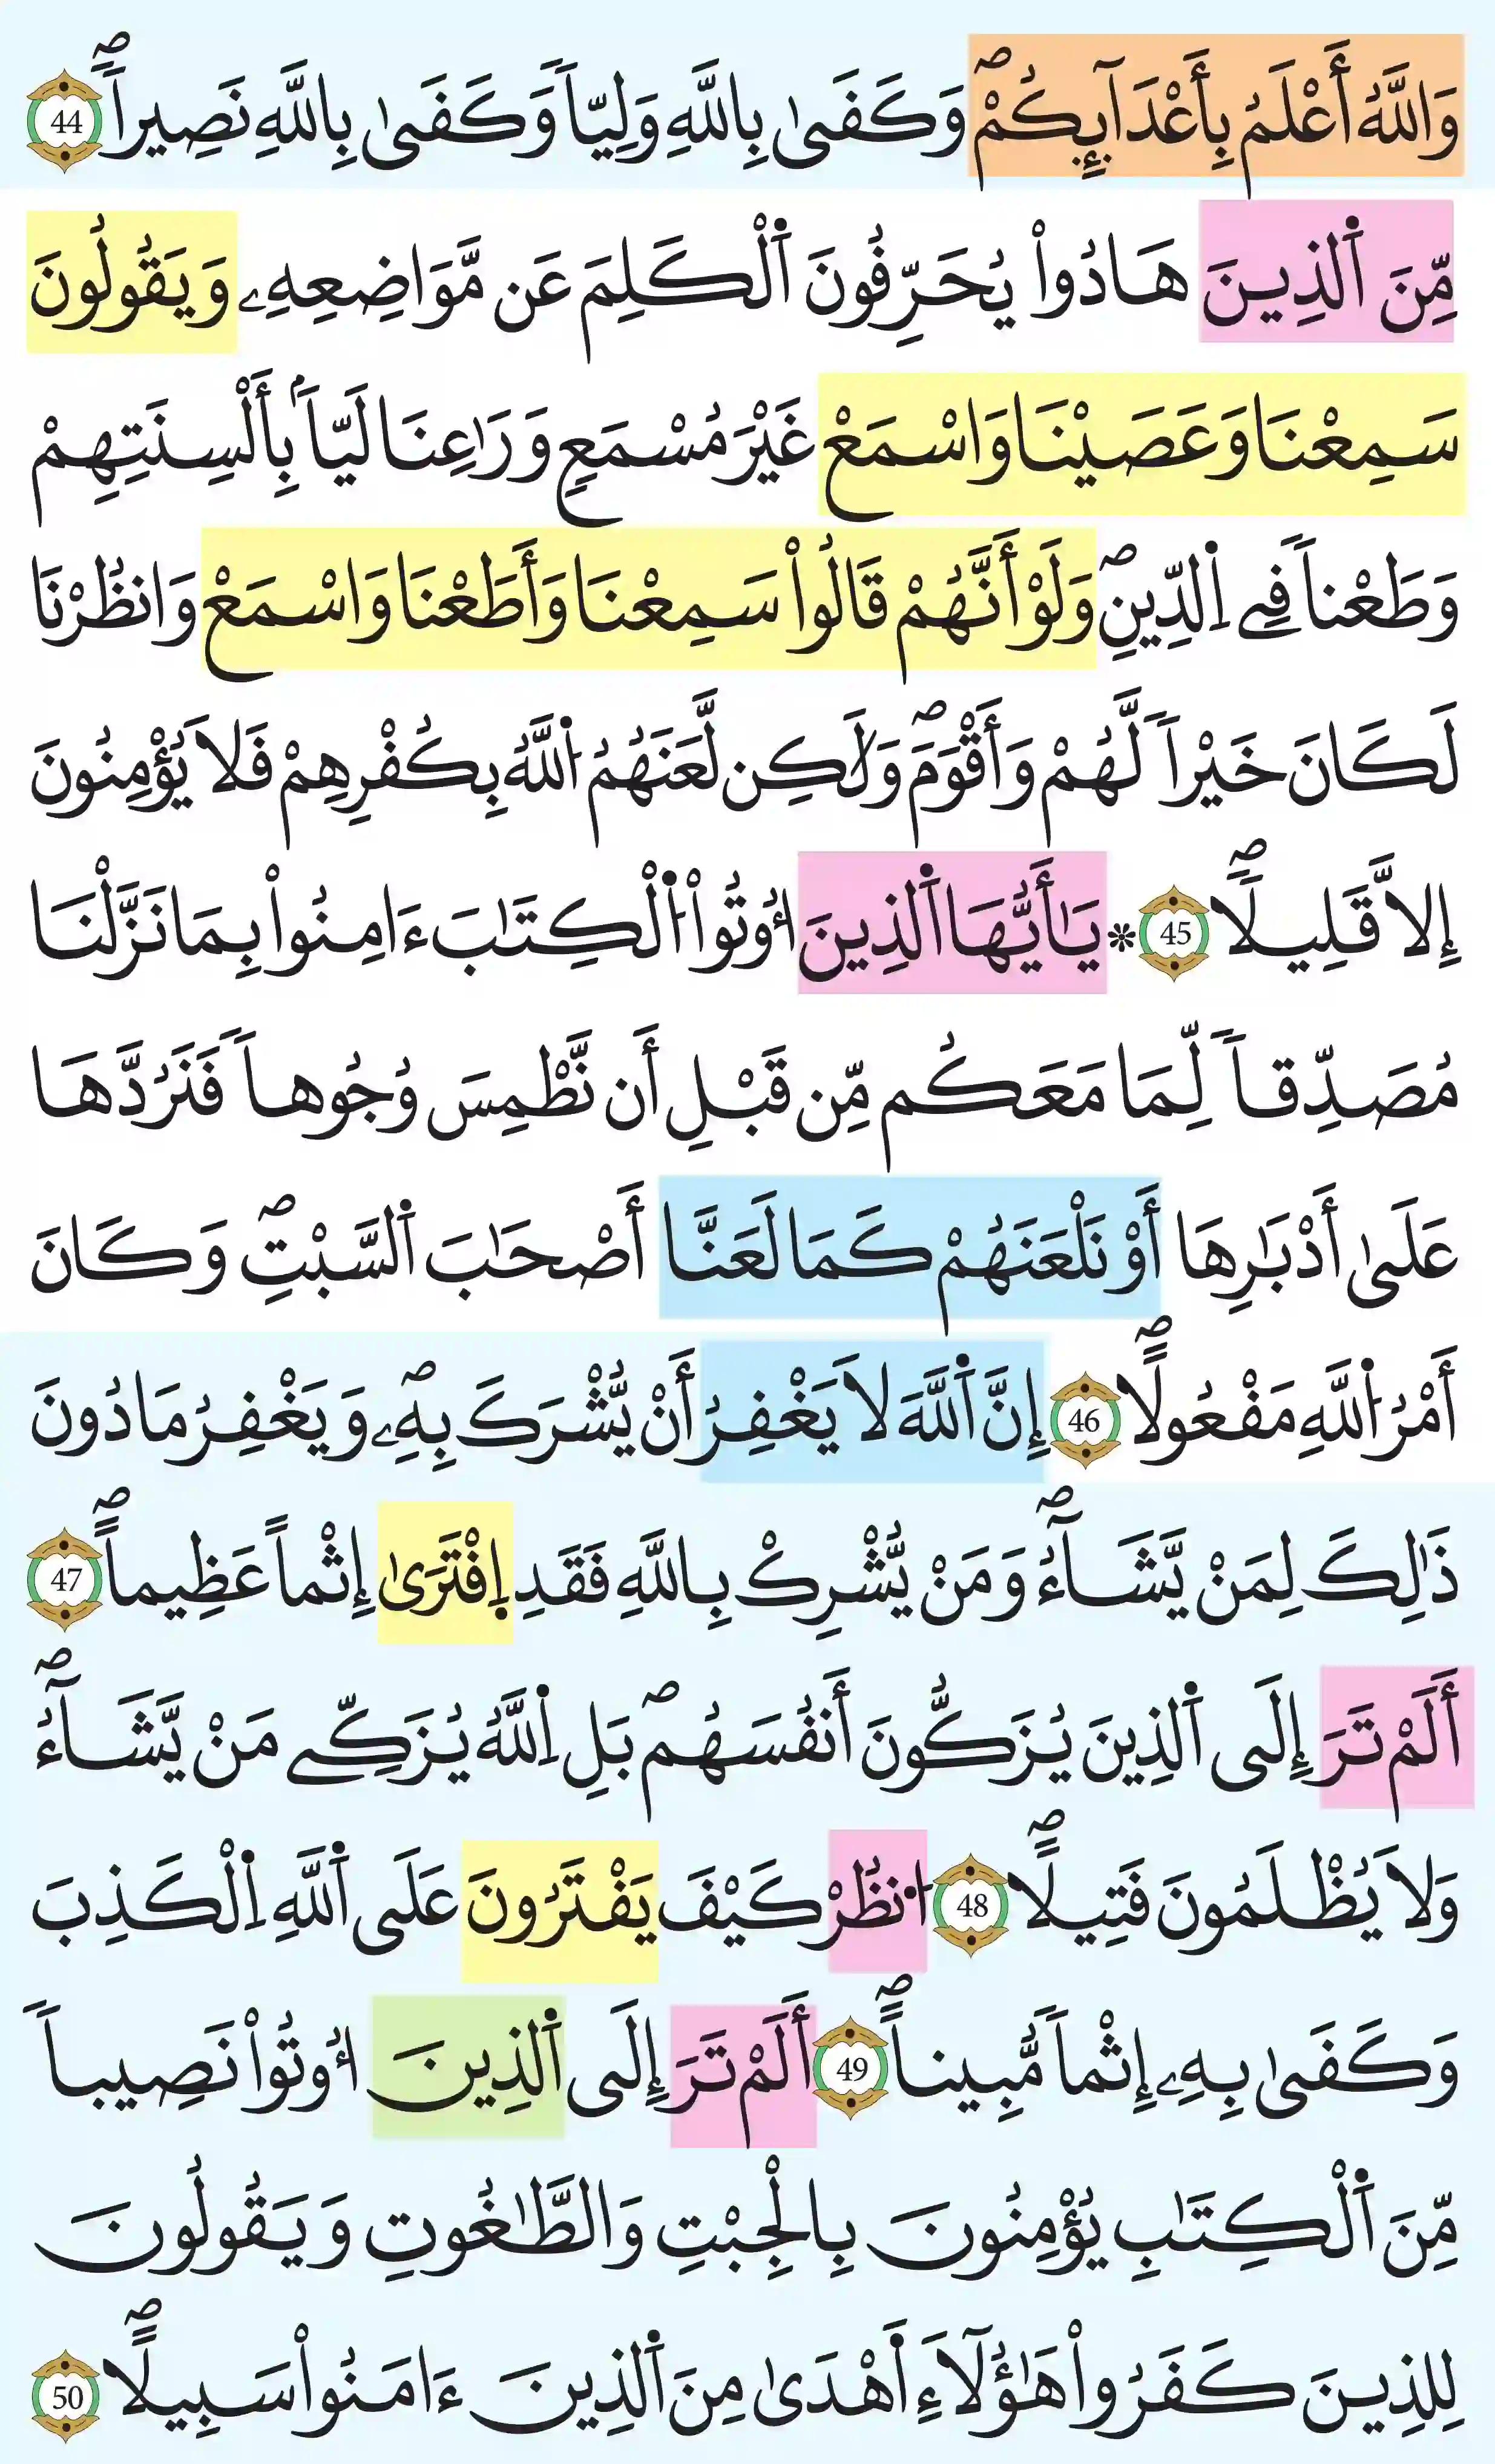 وَاللَّهُ أَعْلَمُ بِأَعْدَآئِكُمْۖ وَكَفَىٰ بِاللَّهِ وَلِيّاً وَكَفَىٰ بِاللَّهِ نَصِيراًۖ 44
مِّنَ اَ۬لذِينَ هَادُواْ يُحَرِّفُونَ اَ۬لْكَلِمَ عَن مَّوَاضِعِهِۦ وَيَقُولُونَ
سَمِعْنَا وَعَصَيْنَا وَاسْمَعْ غَيْرَ مُسْمَعٍ وَرَٰعِنَا لَيّاَۢ بِأَلْسِنَتِهِمْ
وَطَعْناً فِے اِ۬لدِّينِۖ وَلَوْ أَنَّهُمْ قَالُواْ سَمِعْنَا وَأَطَعْنَا وَاسْمَعْ وَانظُرْنَا
لَكَانَ خَيْراً لَّهُمْ وَأَقْوَمَۖ وَلَٰكِن لَّعَنَهُمُ اُ۬للَّهُ بِكُفْرِهِمْ فَلَا يُؤْمِنُونَ
إِلَّا قَلِيلاًۖ 45 ۞ يَٰأَيُّهَا اَ۬لذِينَ أُوتُواْ اُ۬لْكِتَٰبَ ءَامِنُواْ بِمَا نَزَّلْنَا
مُصَدِّقاً لِّمَا مَعَكُم مِّن قَبْلِ أَن نَّطْمِسَ وُجُوهاً فَنَرُدَّهَا
عَلَىٰ أَدْبَٰرِهَا أَوْ نَلْعَنَهُمْ كَمَا لَعَنَّا أَصْحَٰبَ اَ۬لسَّبْتِۖ وَكَانَ
أَمْرُ اُ۬للَّهِ مَفْعُولاًۖ 46 إِنَّ اَ۬للَّهَ لَا يَغْفِرُ أَنْ يُّشْرَكَ بِهِۦۖ وَيَغْفِرُ مَا دُونَ
ذَٰلِكَ لِمَنْ يَّشَآءُۖ وَمَنْ يُّشْرِكْ بِاللَّهِ فَقَدِ اِ۪فْتَرَىٰ إِثْماً عَظِيماًۖ 47
أَلَمْ تَرَ إِلَى اَ۬لذِينَ يُزَكُّونَ أَنفُسَهُمۖ بَلِ اِ۬للَّهُ يُزَكِّے مَنْ يَّشَآءُۖ
وَلَا يُظْلَمُونَ فَتِيلاًۖ 48 اُ۟نظُرْ كَيْفَ يَفْتَرُونَ عَلَى اَ۬للَّهِ اِ۬لْكَذِبَ
وَكَفَىٰ بِهِۦ إِثْماً مُّبِيناًۖ 49 أَلَمْ تَرَ إِلَى اَ۬لذِينَ أُوتُواْ نَصِيباً
مِّنَ اَ۬لْكِتَٰبِ يُؤْمِنُونَ بِالْجِبْتِ وَالطَّٰغُوتِ وَيَقُولُونَ
لِلذِينَ كَفَرُواْ هَٰؤُلَآءِ أَهْدَىٰ مِنَ اَ۬لذِينَ ءَامَنُواْ سَبِيلاًۖ 50